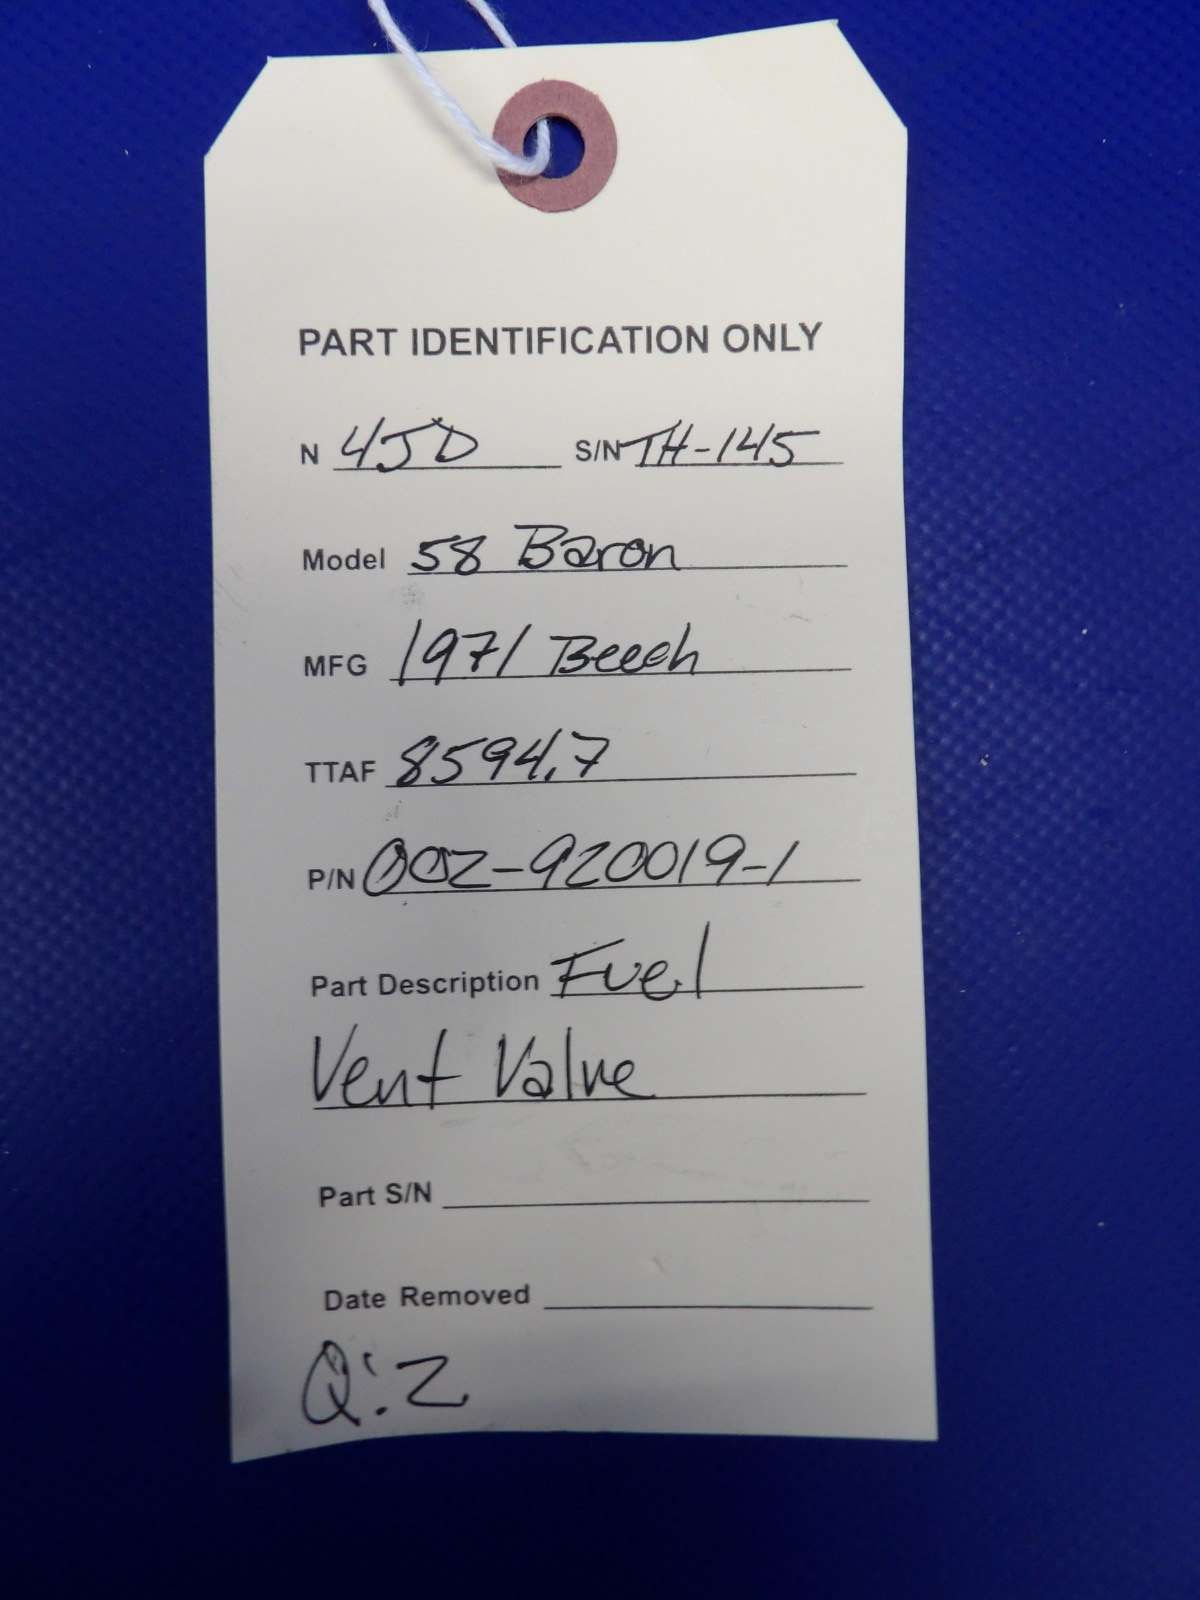 PART IDENTIFICATION ONLY
N 4JD S/N TH-145
Model 58 Baron
MFG 1971 Beech
TTAF 8594.7
P/N 002-920019-1
Part Description Fuel
Vent Valve
Part S/N
Date Removed
Q:2